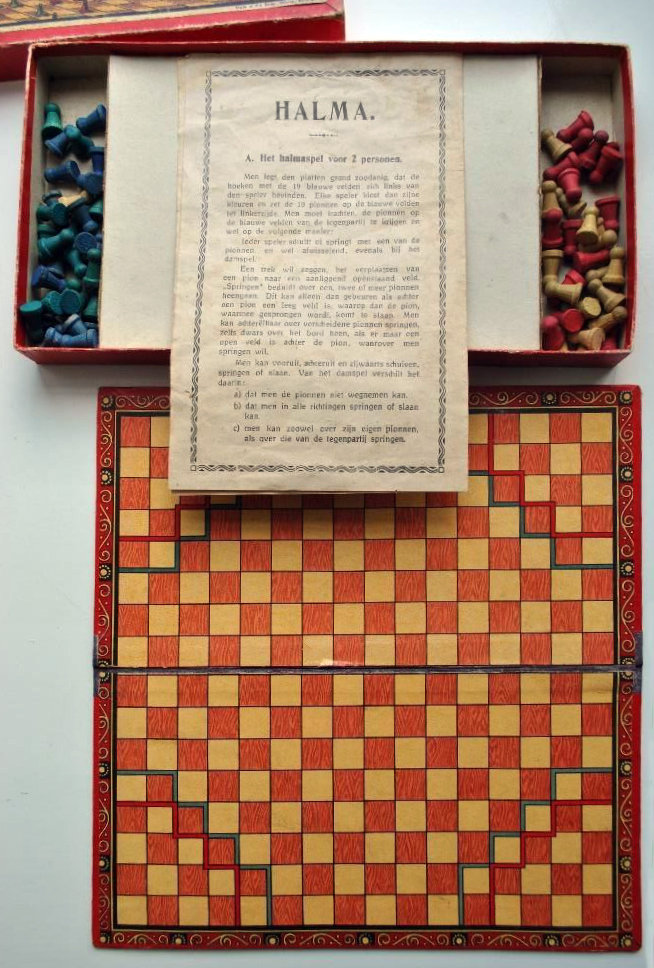 HALMA.
A. Het halmaspel voor 2 personen.
Men legt den platten grond zoodanig, dat de
hoeken met de 19 blauwe velden zich links van
den speler bevinden. Elke speler kiest dan zijne
kleuren en zet de 19 pionnen op de blauwe velden
ter linkerzijde. Men moet trachten, de pionnen op
de blauwe velden van de tegenpartij te krijgen en
wel op de volgende manier:
Ieder speler schuift of springt met een van de
pionnen, en wel afwisselend, evenals bij het
damspel.
Een trek wil zeggen, het verplaatsen van
een pion naar een aanliggend openstaand veld.
„Springen" beduidt over een, twee of meer pionnen
heengaan. Dit kan alleen dan gebeuren als achter
een pion een leeg veld is, waarop dan de pion,
waarmee gesprongen wordt, komt te staan. Men
kan achterelkaar over verscheidene pionnen springen,
zelfs dwars over het bord heen, als er maar een
open veld is achter de pion, waarover men
springen wil.
Men kan vooruit, achteruit en zijwaarts schuiven,
springen of slaan. Van het damspel verschilt het
daarin:
a) dat men de pionnen niet wegnemen kan.
b) dat men in alle richtingen springen of slaan
kan.
c) men kan zoowel over zijn eigen pionnen,
als over die van de tegenpartij springen.